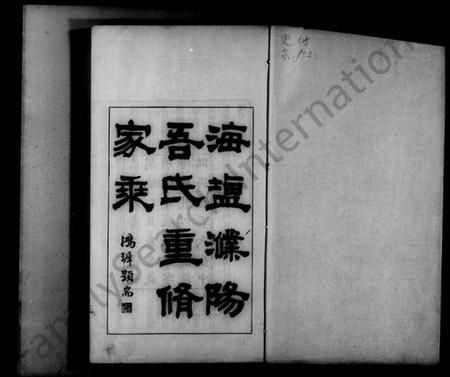 海鹽濮陽
吾氏重脩
家乘
史 付
FamilySearch International